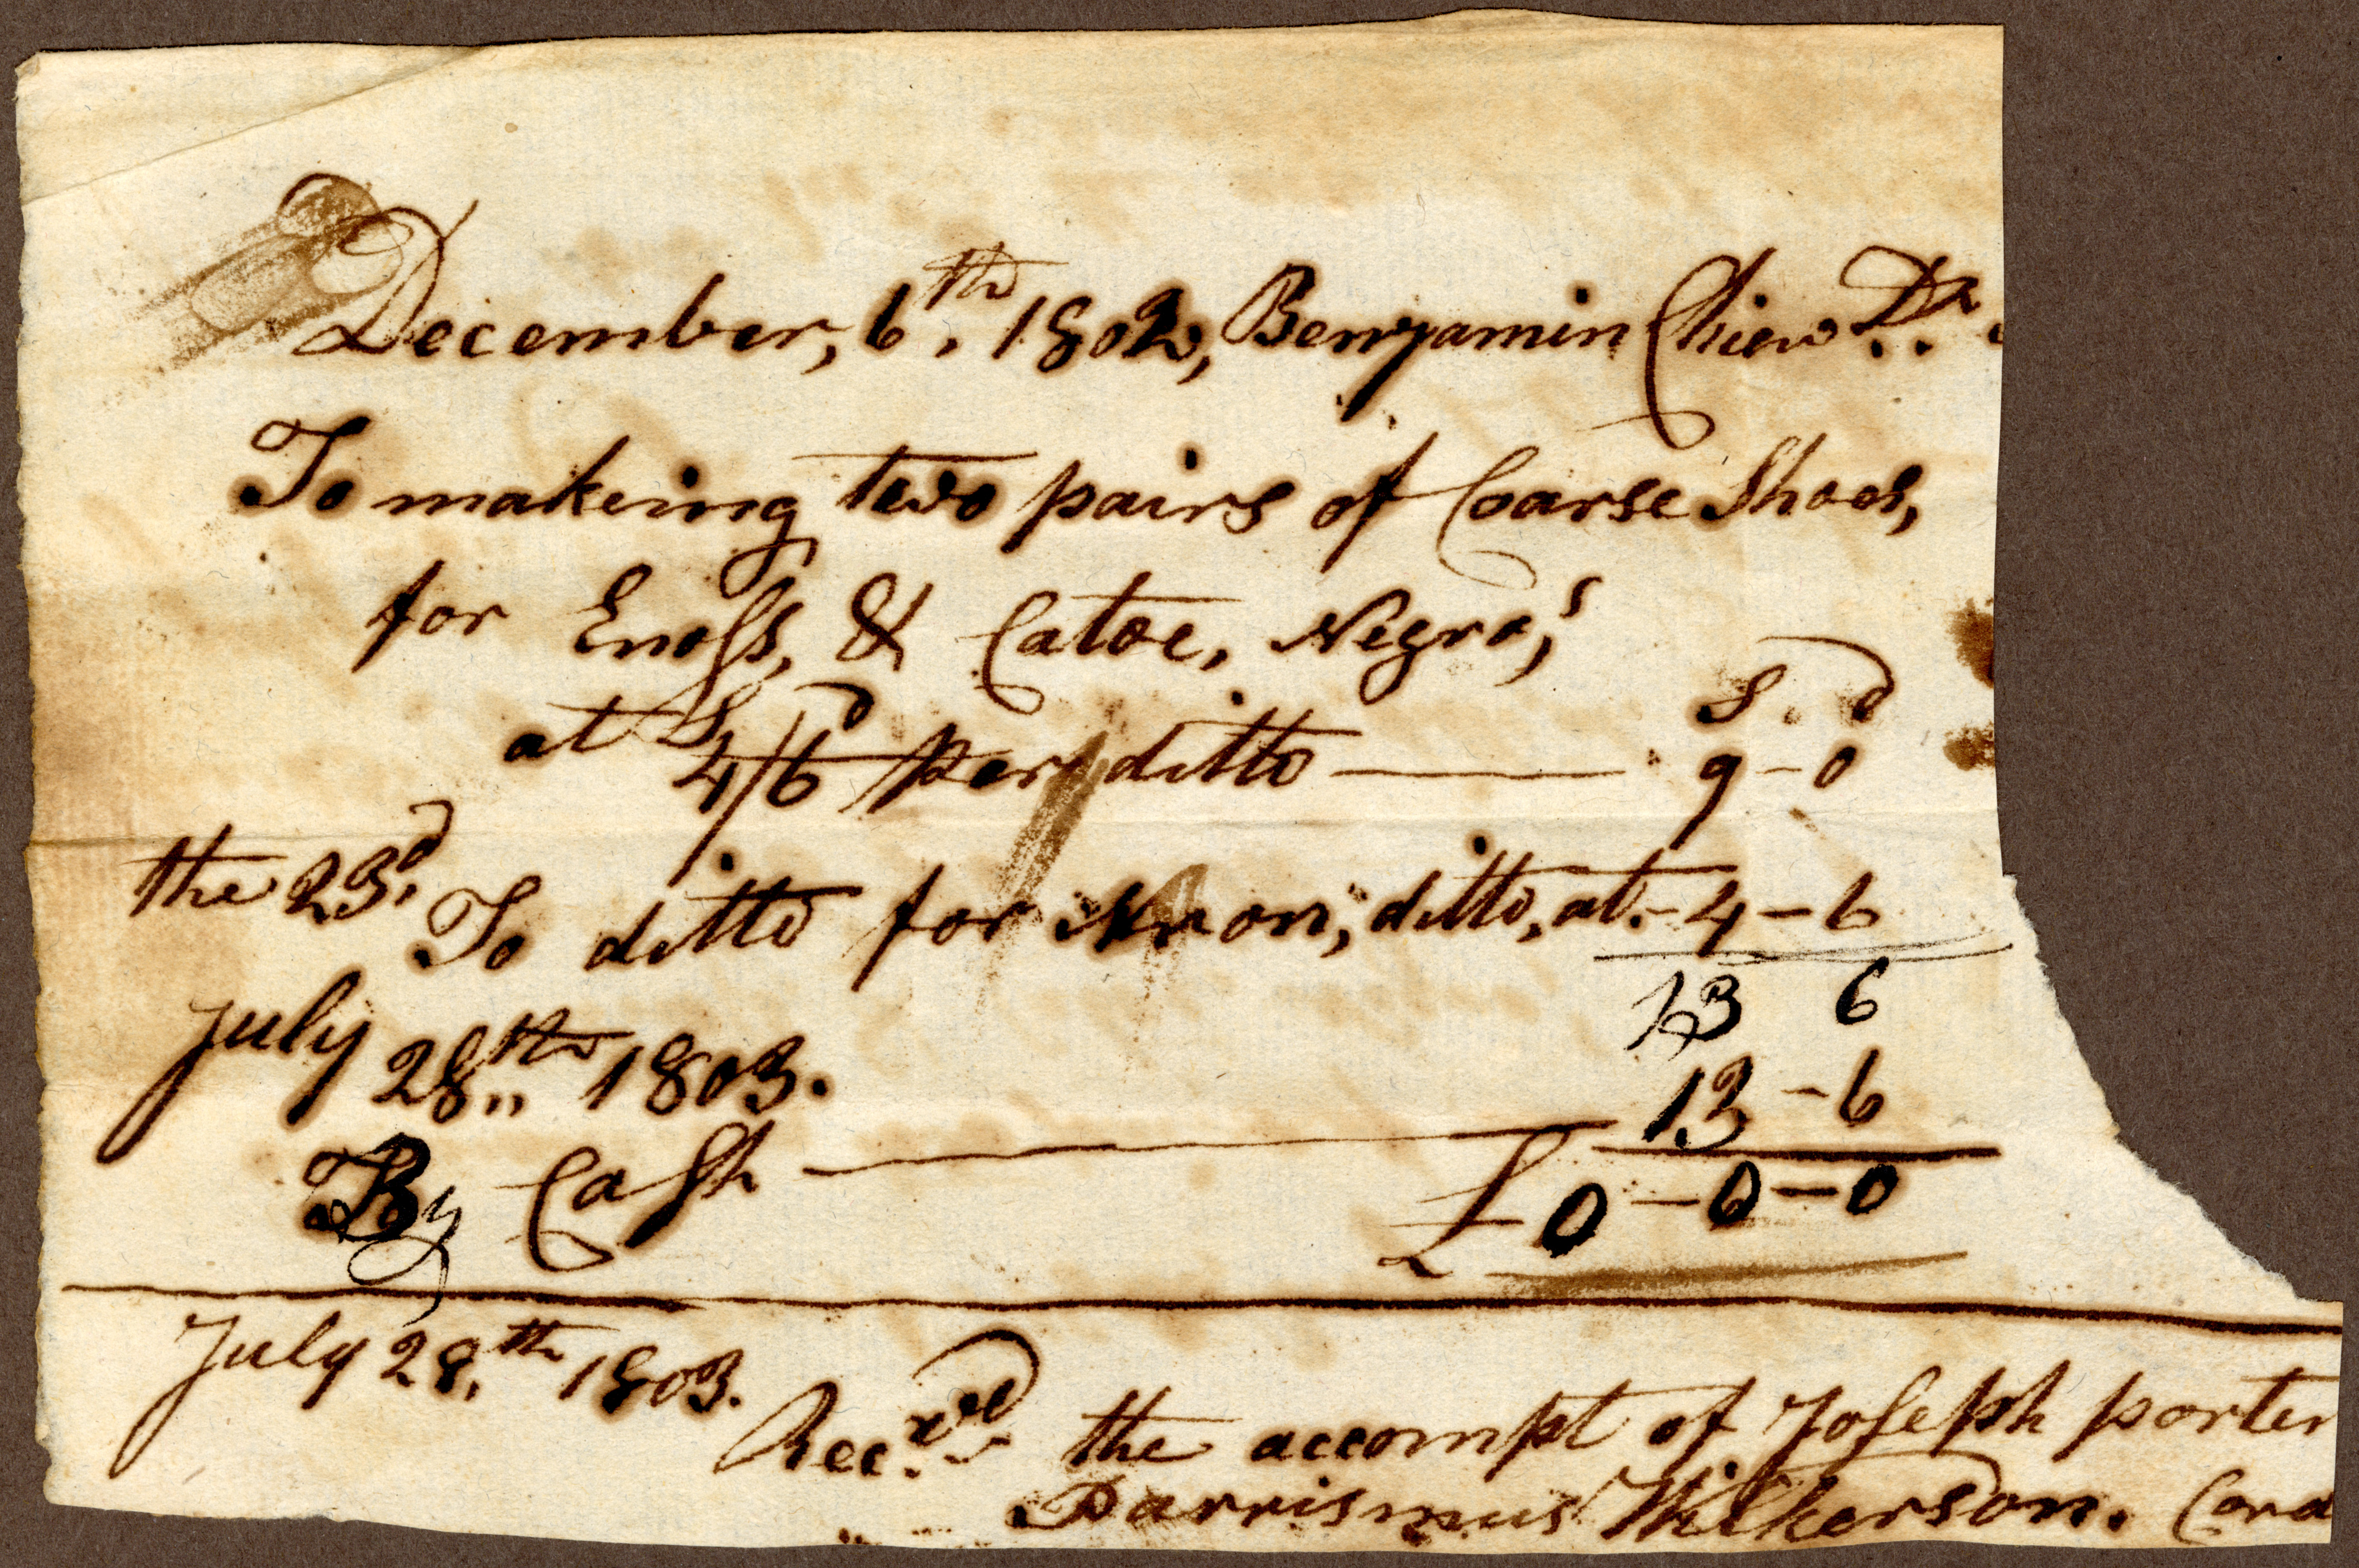 December, 6.th 1802, Benjamin Chiew Dr.
To makeing two pairs of Coarse Shoes,
for Enoss, & Catoe, Negro,s
S. d
at S 4/6 d per ditto — 9 - 0
the 23.d
To ditto for Aron, ditto, at. - 4 - 6
13 6
July 28.th 1803.
13 - 6
By Cash — £ 0 - 0 - 0
July 28.th 1803.
Rec.ved the accompt of Joseph porter
Parrismus Wilkerson. Cord